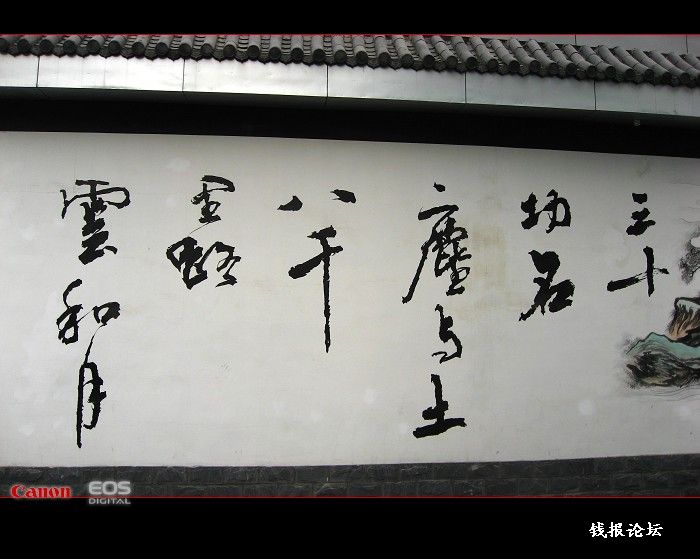 三十
功名
塵与土
八千
里路
雲和月
Canon EOS
DIGITAL
钱报论坛